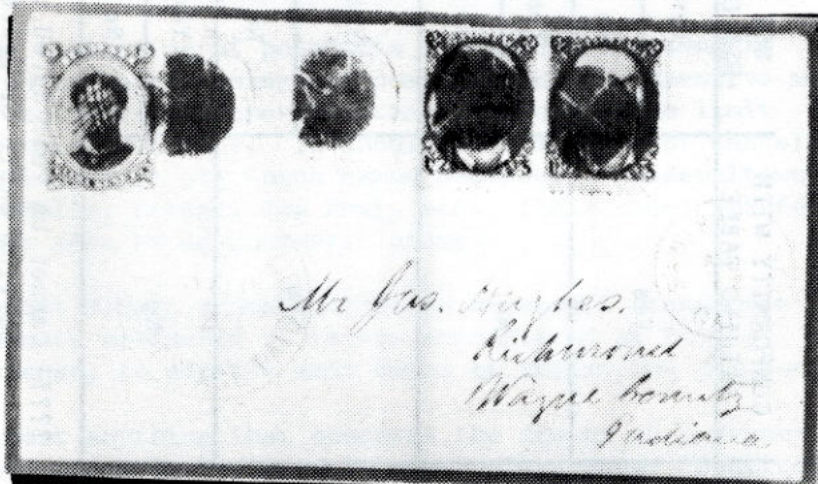 Mr Jas. Hughes.
Richmond
Wayne County
Indiana